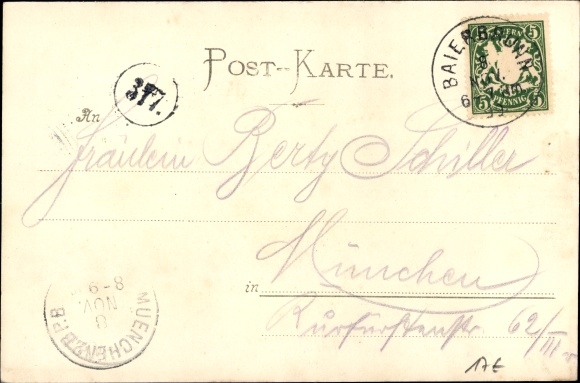 POST-KARTE.
BAYERN
5 5
5 PFENNIG 5
BAIERBRUNN
377.
An
Fräulein Berty Schiller
in München
Kurfürstenstr 62/III r
MUENCHEN B.P.B
8
NOV.
8-9
17E